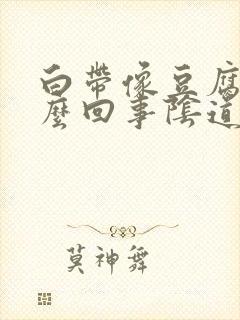 白帶像豆腐
麼回事陰道
莫神舞